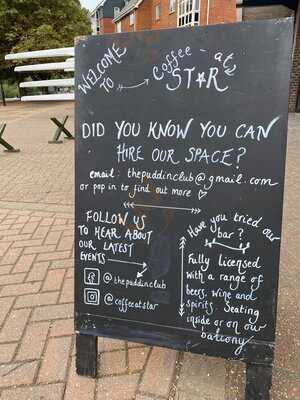 WELCOME
TO
Coffee - at
STAR
DID YOU KNOW YOU CAN
HIRE OUR SPACE?
email: thepuddinclub@gmail.com
or pop in to find out more
FOLLOW US
TO HEAR ABOUT
OUR LATEST
EVENTS
@thepuddinclub
@coffeeatstar
Have you tried our
bar?
Fully licensed
with a range of
beers, wine and
spirits. Seating
inside or on our
balcony